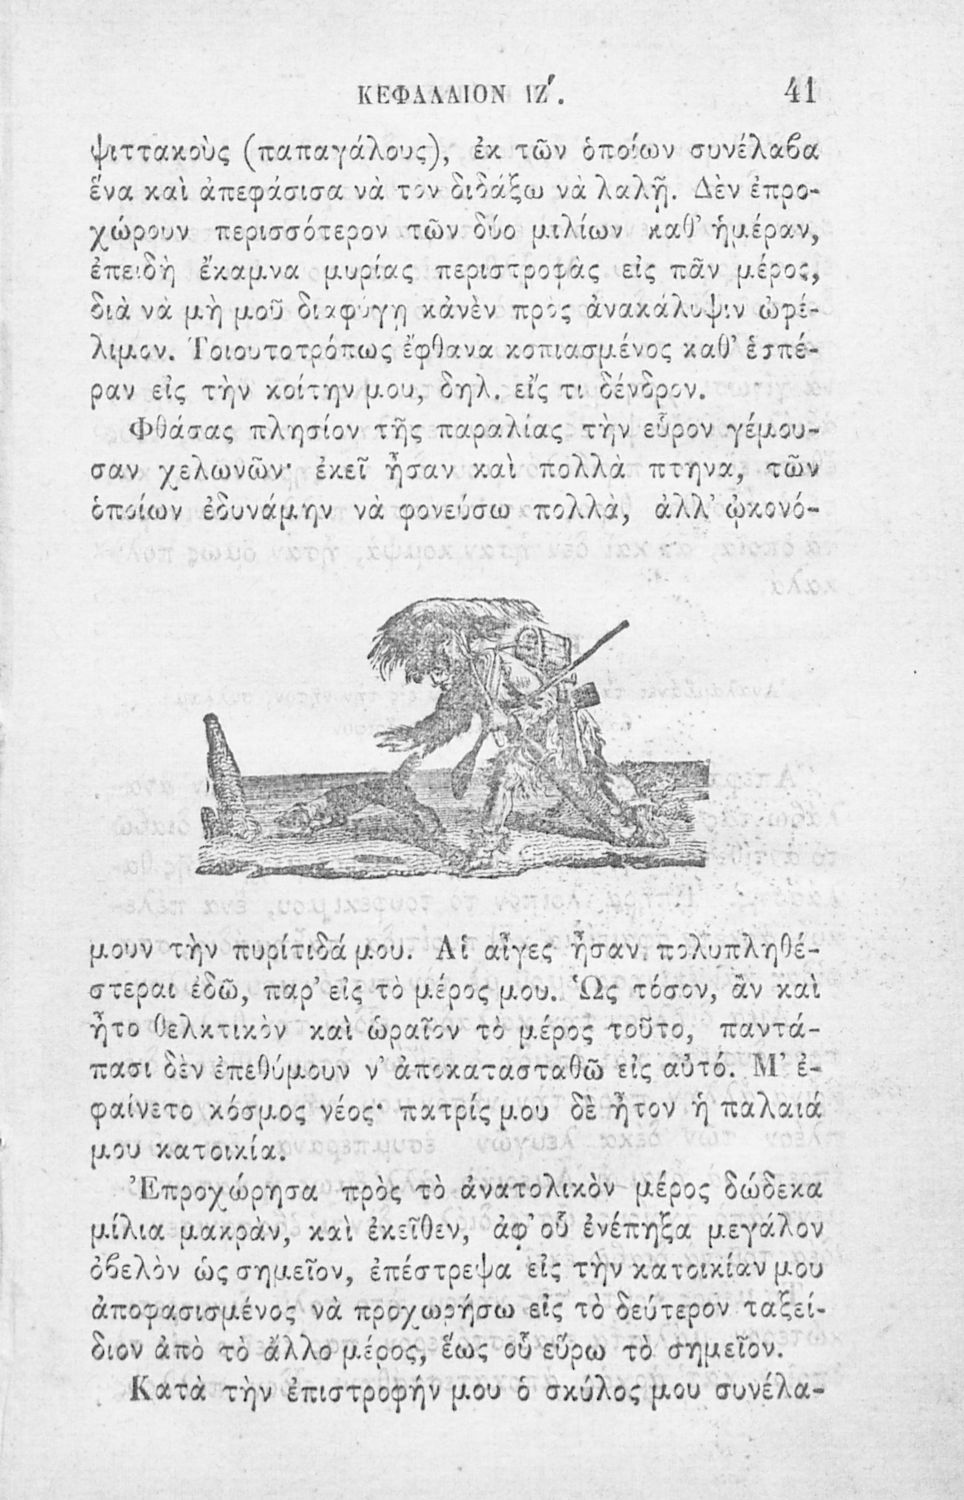 ΚΕΦΑΛΑΙΟΝ ΙΖʹ. 41
ψιττακοὺς (παπαγάλους), ἐκ τῶν ὁποίων συνέλαβα
ἕνα καὶ ἀπεφάσισα νὰ τὸν διδάξω νὰ λαλῇ. Δὲν ἐπρο-
χώρουν περισσότερον τῶν δύο μιλίων καθ’ ἡμέραν,
ἐπειδὴ ἔκαμνα μυρίας περιστροφὰς εἰς πᾶν μέρος,
διὰ νὰ μὴ μοῦ διαφύγῃ κἀνὲν πρὸς ἀνακάλυψιν ὠφέ-
λιμον. Τοιουτοτρόπως ἔφθανα κοπιασμένος καθ’ ἑσπέ-
ραν εἰς τὴν κοίτην μου, δηλ. εἴς τι δένδρον.
Φθάσας πλησίον τῆς παραλίας τὴν εὗρον γέμου-
σαν χελωνῶν· ἐκεῖ ἦσαν καὶ πολλὰ πτηνα, τῶν
ὁποίων ἐδυνάμην νὰ φονεύσω πολλὰ, ἀλλ’ ᾠκονό-
μουν τὴν πυρίτιδά μου. Αἱ αἶγες ἦσαν πολυπληθέ-
στεραι ἐδῶ, παρ’ εἰς τὸ μέρος μου. Ὡς τόσον, ἂν καὶ
ἦτο θελκτικὸν καὶ ὡραῖον τὸ μέρος τοῦτο, παντά-
πασι δὲν ἐπεθύμουν ν’ ἀποκατασταθῶ εἰς αὐτό. Μ’ ἐ-
φαίνετο κόσμος νέος· πατρίς μου δὲ ἦτον ἡ παλαιά
μου κατοικία.
Ἐπροχώρησα πρὸς τὸ ἀνατολικὸν μέρος δώδεκα
μίλια μακρὰν, καὶ ἐκεῖθεν, ἀφ’ οὗ ἐνέπηξα μεγάλον
ὀβελὸν ὡς σημεῖον, ἐπέστρεψα εἰς τὴν κατοικίαν μου
ἀποφασισμένος νὰ προχωρήσω εἰς τὸ δεύτερον ταξεί-
διον ἀπὸ τὸ ἄλλο μέρος, ἕως οὗ εὕρω τὸ σημεῖον.
Κατὰ τὴν ἐπιστροφήν μου ὁ σκύλος μου συνέλα-